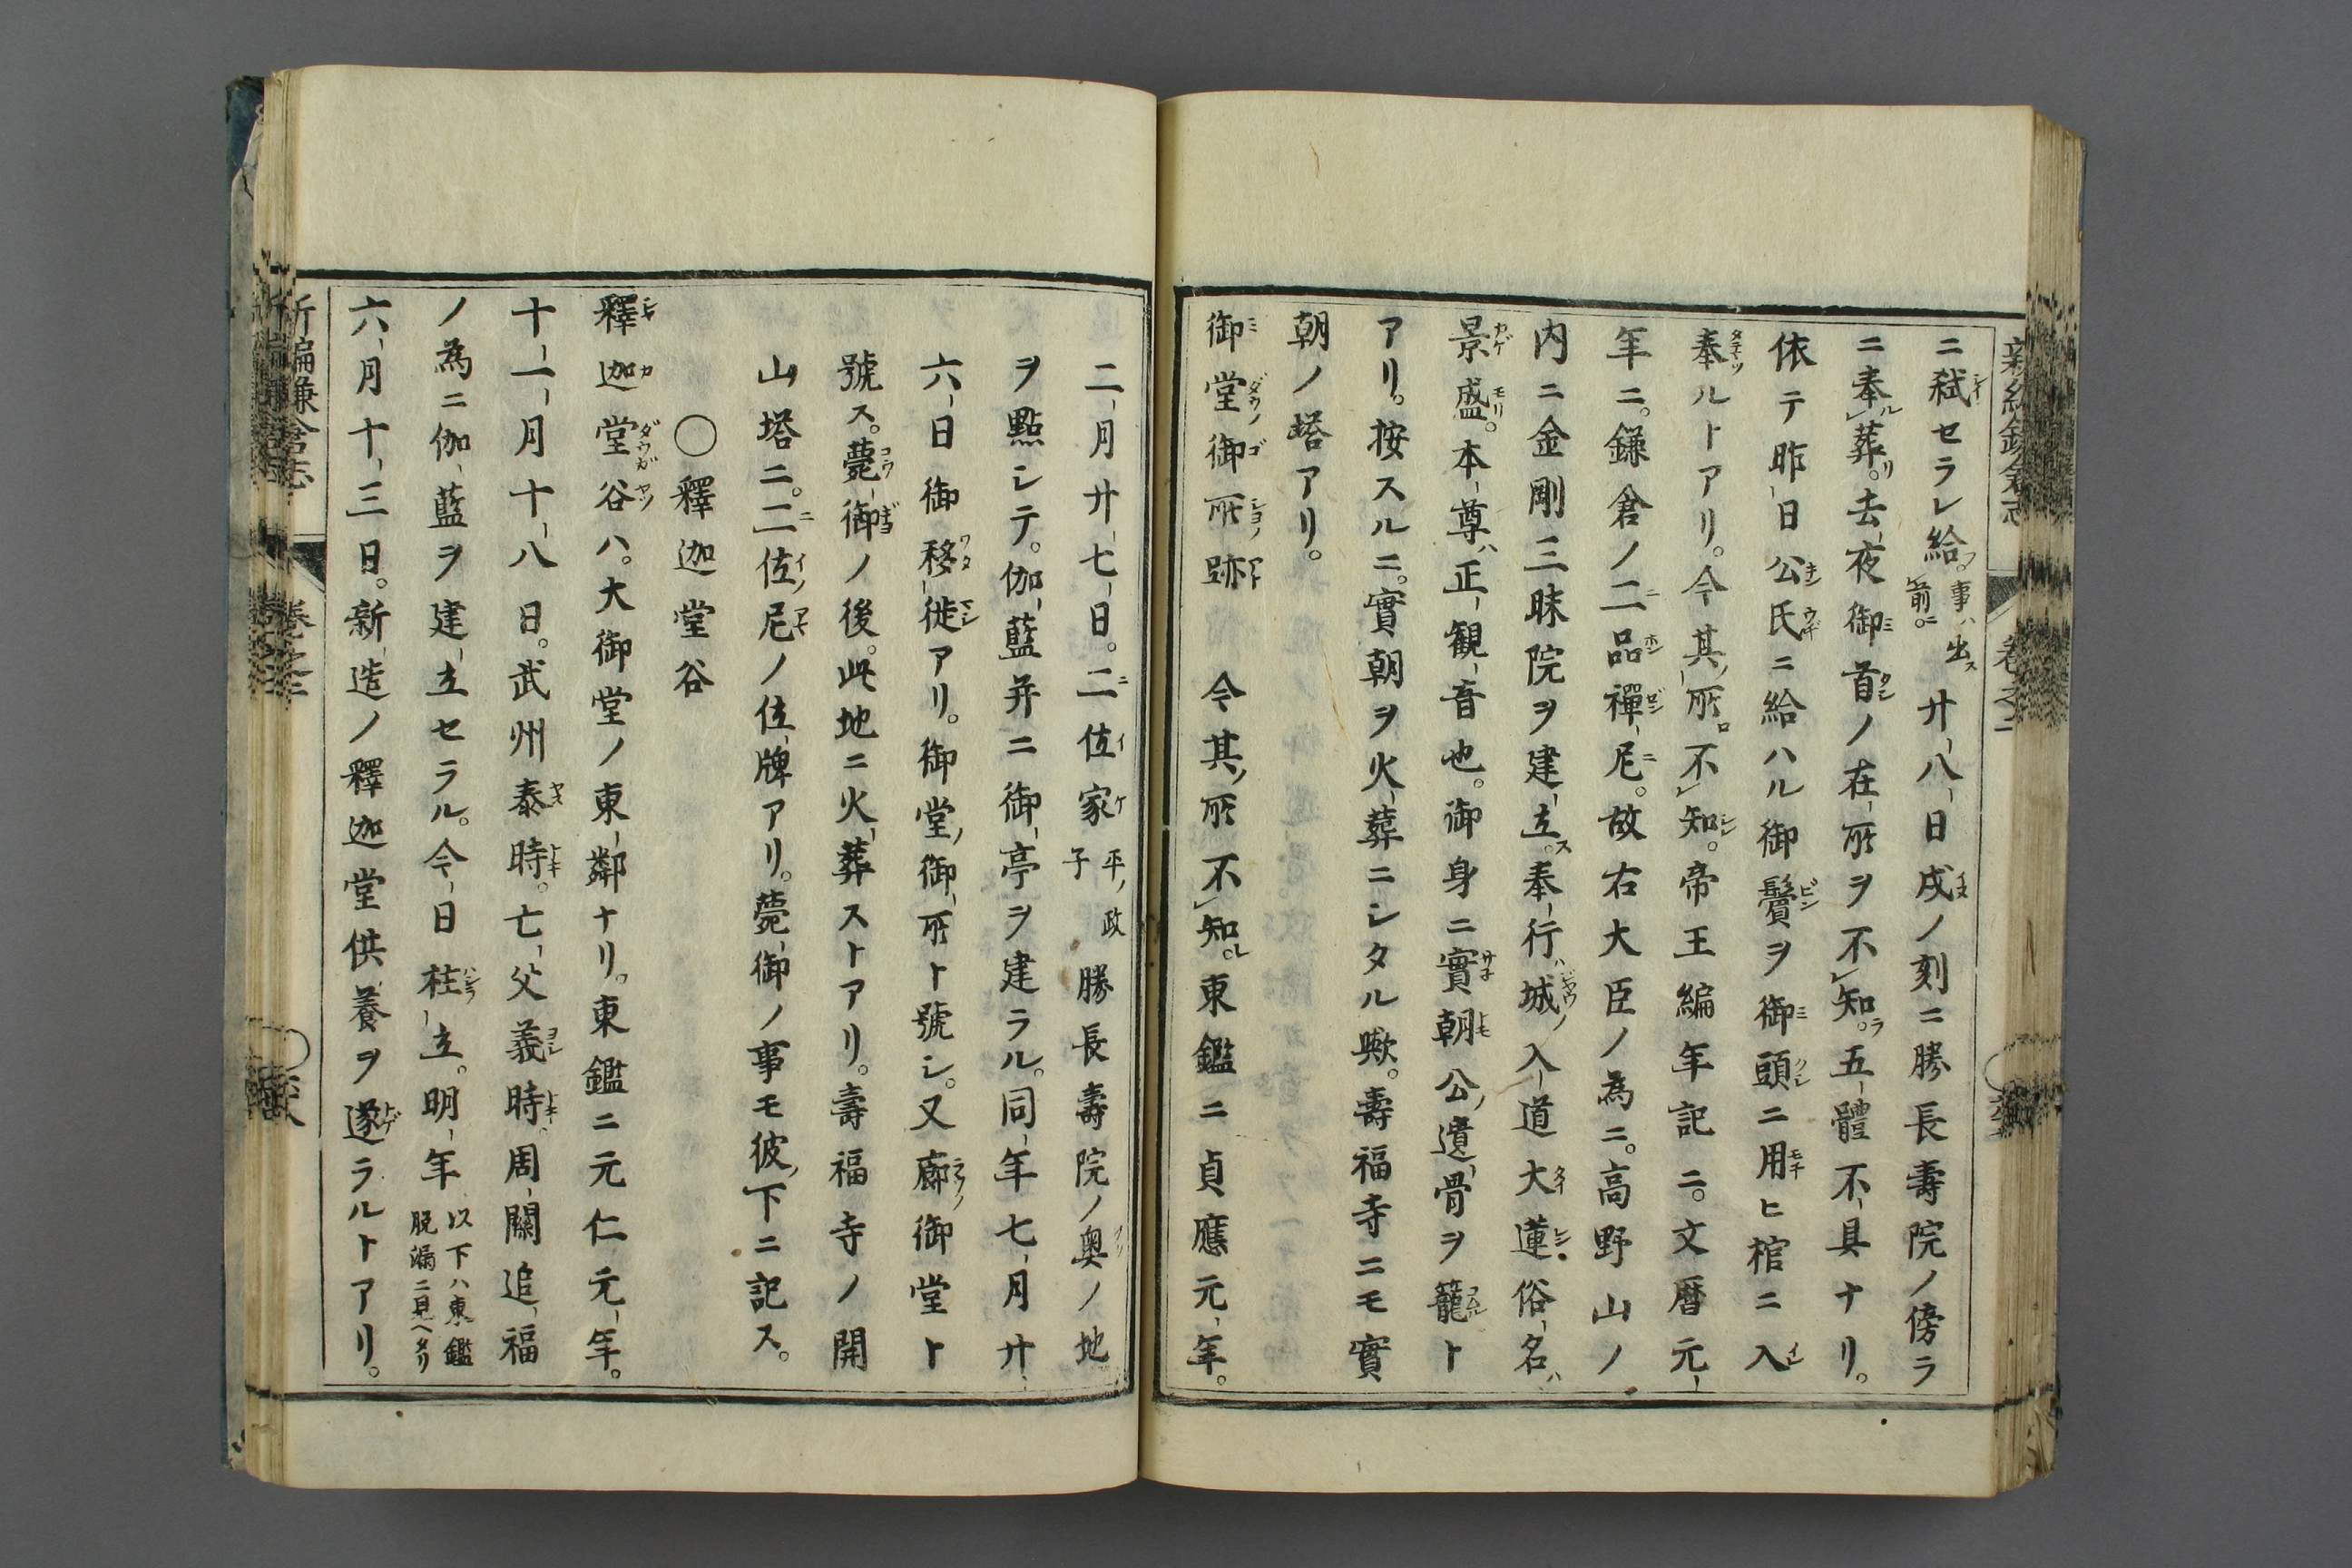 ニ弑セラレ給フ。事ハ出ス前ニ。廿八日戌ノ刻ニ勝長壽院ノ傍ラ
ニ奉ルレ葬リ。去夜御首ノ在所ヲ不レ知ラ。五體不具ナリ。
依テ昨日公氏ニ給ハル御鬢ヲ御頭ニ用ヒ棺ニ入
奉ルトアリ。今其ノ所不レ知。帝王編年記ニ。文暦元
年ニ。鎌倉ノ二品禪尼。故右大臣ノ為ニ。高野山ノ
内ニ金剛三昧院ヲ建立ス。奉行ハ城ノ入道大蓮俗名ハ
景盛。本尊ハ正観音也。御身ニ實朝公ノ遺骨ヲ籠ト
アリ。按スルニ。實朝ヲ火葬ニシタル歟。壽福寺ニモ實
朝ノ塔アリ。
御堂御所跡 今其ノ所不レ知レ。東鑑ニ貞應元年。
二月廿七日。二位家平ノ政子勝長壽院ノ奥ノ地
ヲ點シテ。伽藍并ニ御亭ヲ建ラル。同年七月廿
六日御移徙アリ。御堂ノ御所ト號シ。又廊ノ御堂ト
號ス。薨御ノ後。此地ニ火葬ストアリ。壽福寺ノ開
山塔ニ。二位ノ尼ノ位牌アリ。薨御ノ事モ彼ノ下ニ記ス。
〇釋迦堂谷
釋迦堂谷ハ。大御堂ノ東鄰ナリ。東鑑ニ元仁元年。
十一月十八日。武州泰時。亡父義時周關追福
ノ為ニ伽藍ヲ建立セラル。今日柱立。明年以下ハ東鑑脱漏ニ見ヘタリ
六月十三日。新造ノ釋迦堂供養ヲ遂ラルトアリ。
新編鎌倉志
卷之二